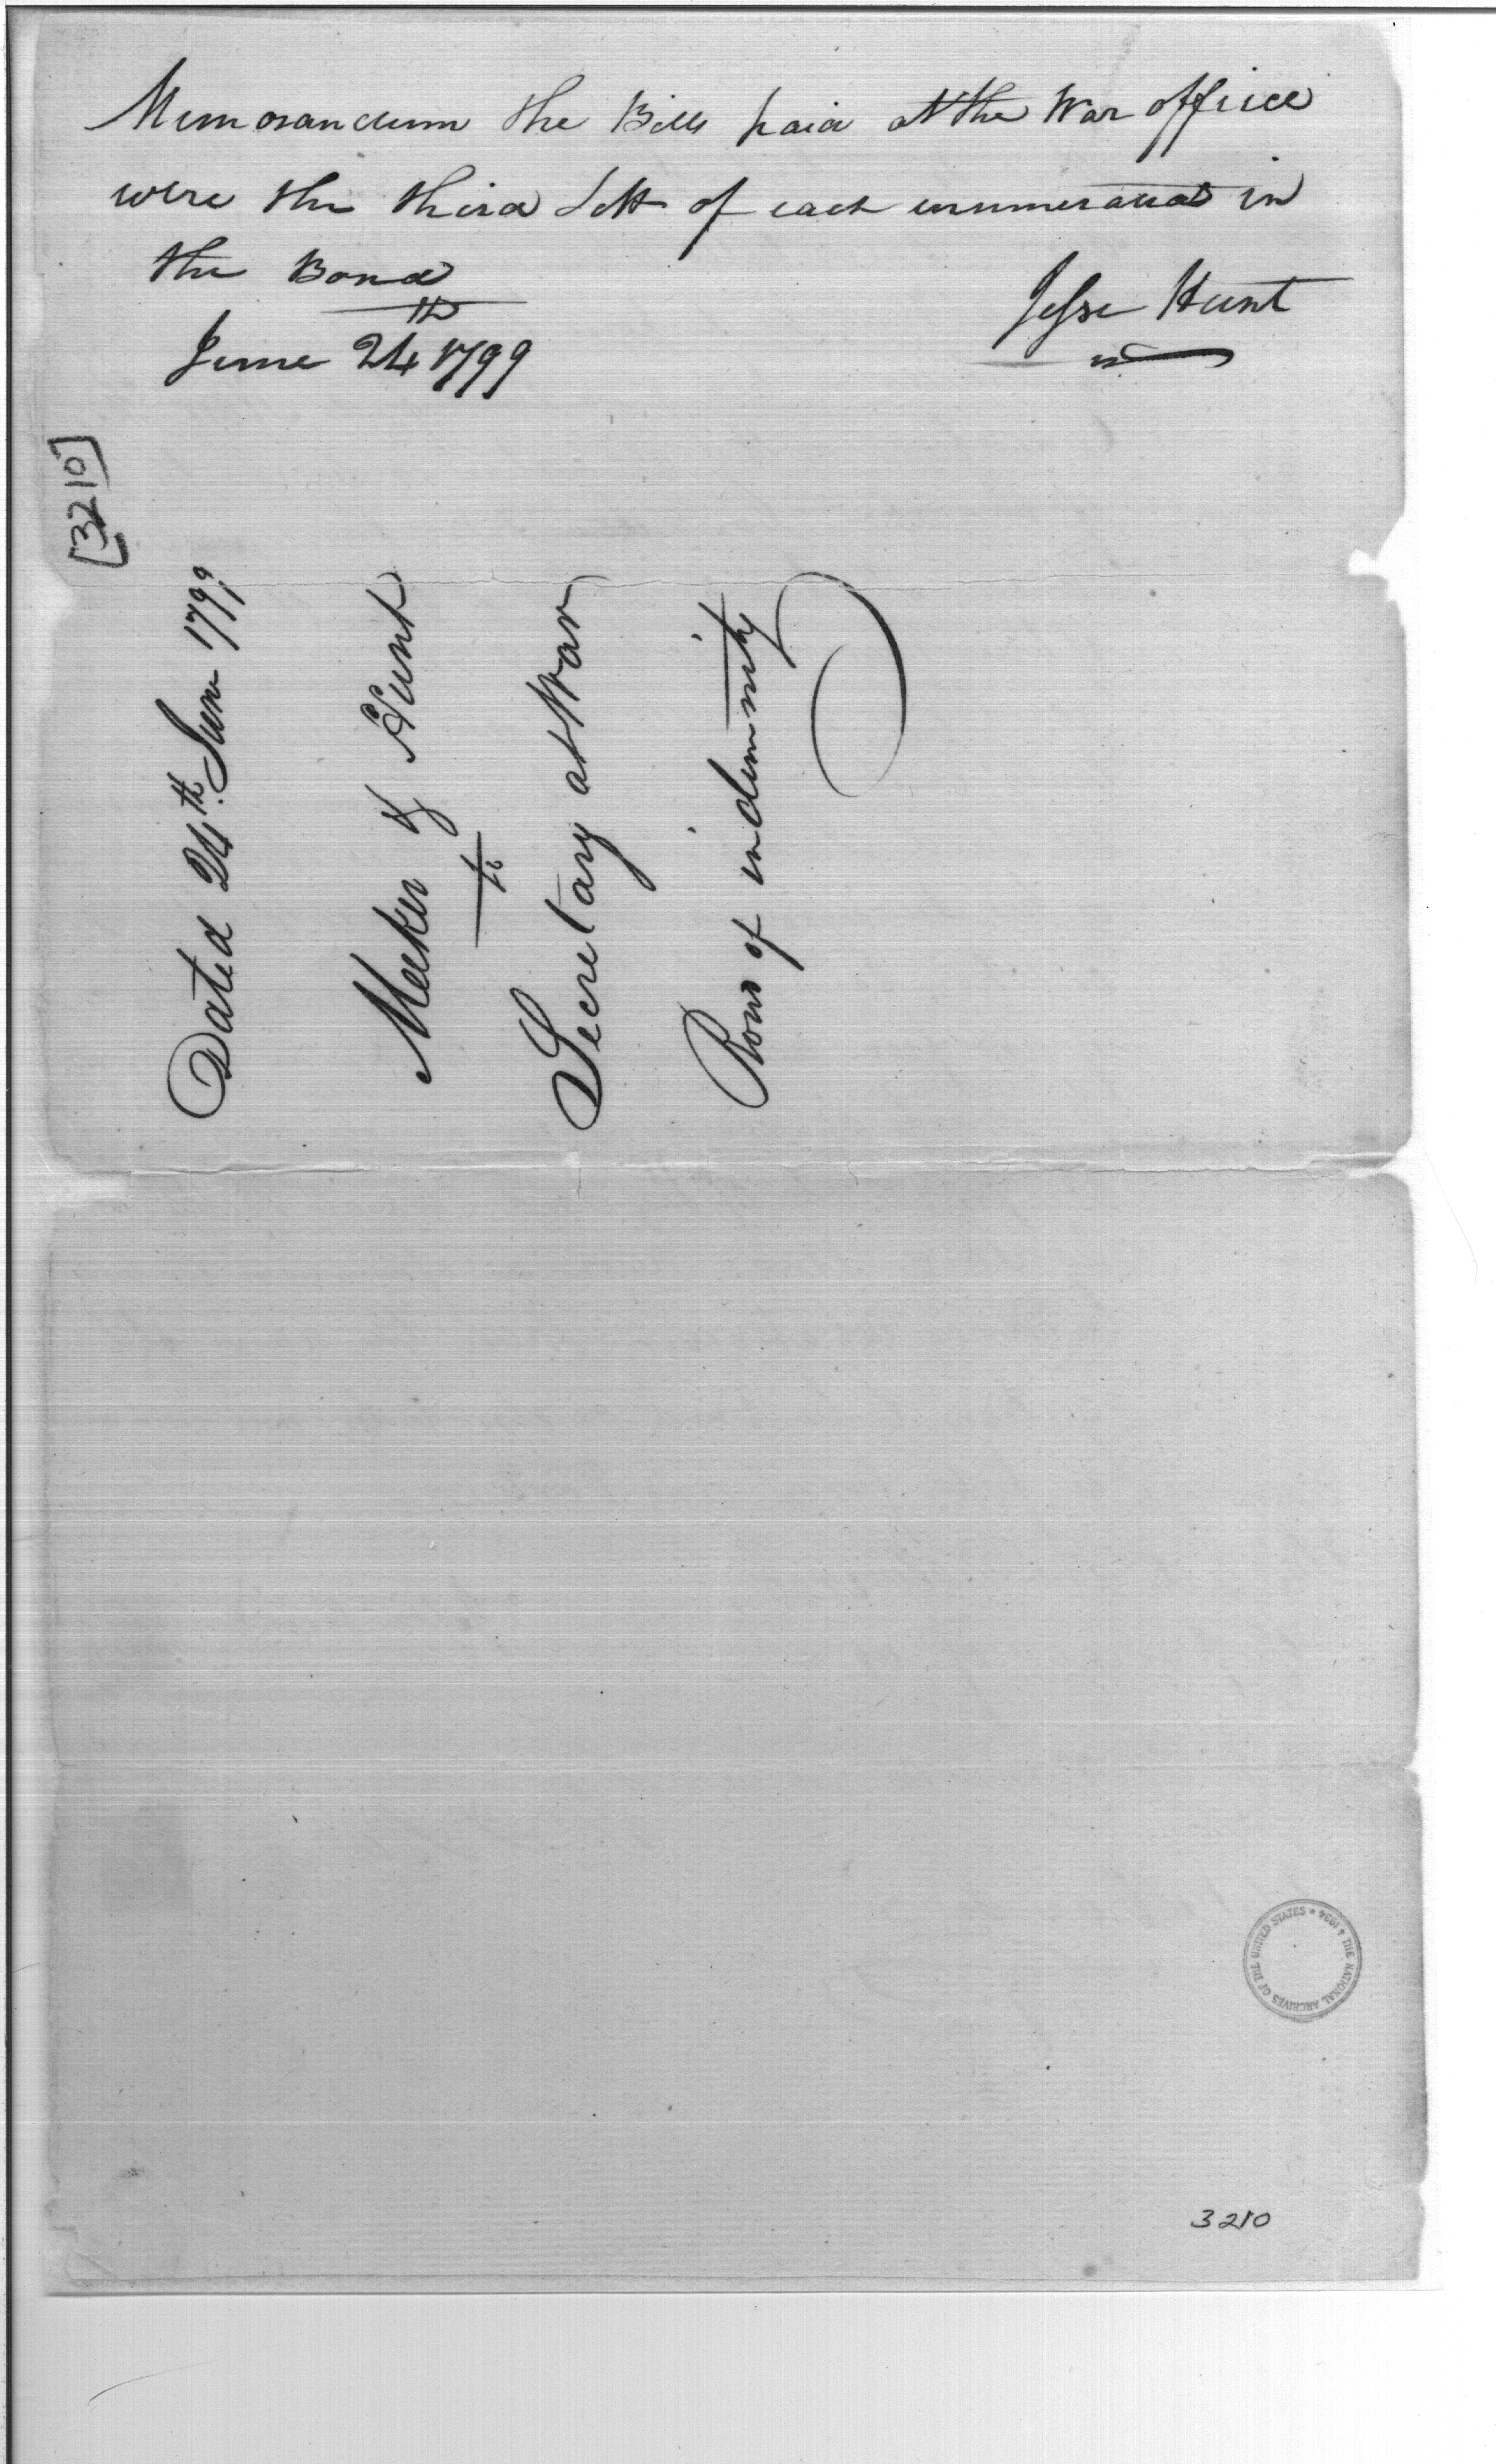 Memorandum the Bills paid at the War offiice
were the third Sett of each enumerated in
the Bond
June 24th 1799
Jesse Hunt
[3210]
Dated 24th. June 1799
Meeker & Hunt
to
Secretary at War
Bond of indemnity
THE NATIONAL ARCHIVES OF THE UNITED STATES * 1934 *
3210